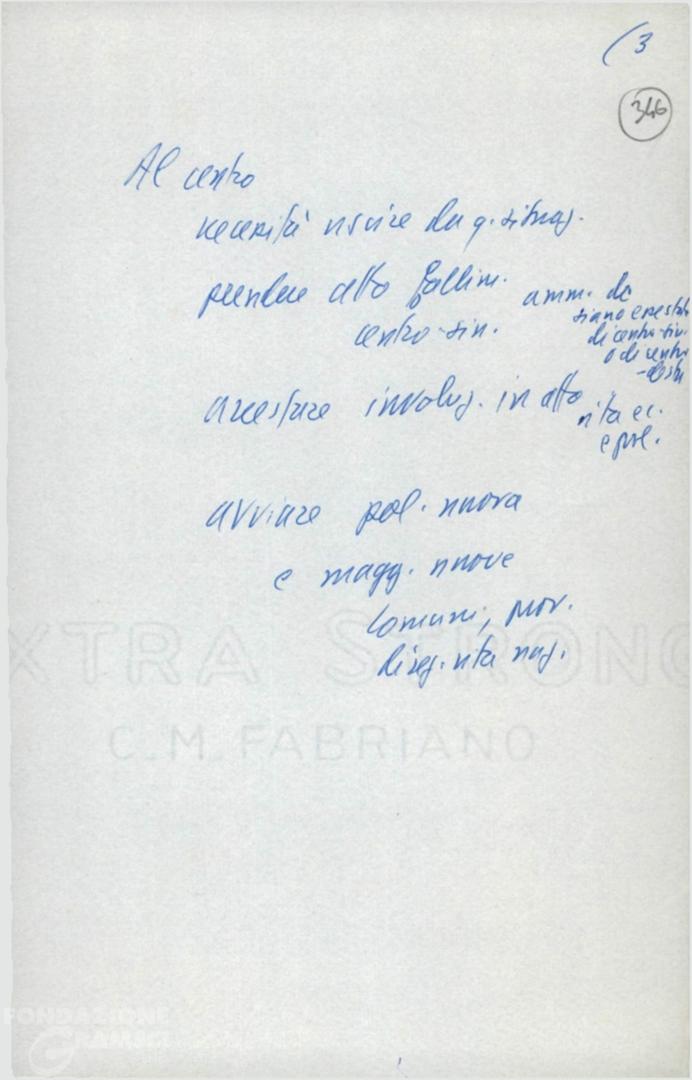 (3
346
Al centro
necessità uscire da q. situaz.
prendere atto fallim.
centro-sin.
amm. di
siano e restate
di centro-sin.
o di centro
-destra
arrestare involuz. in atto
vita ec.
e pol.
avviare pol. nuova
e magg. nuove
Comuni, prov.
direz. vita naz.
EXTRA STRONG
C.M. FABRIANO
FONDAZIONE
GRAMSCI